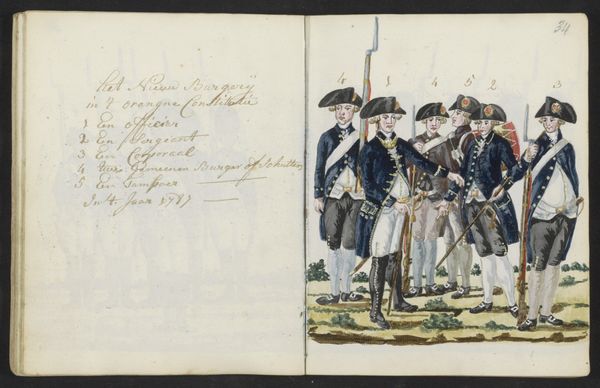 het Nieuw Burgerij
in 't orangne Constitutie
1 Een officier
2 Een Sergeant
3 Een Corporaal
4 twe Gemeenen Burger of Schutters
5 Een Tamboer
In 't Jaar 1787
34
4 1 4 5 2 3